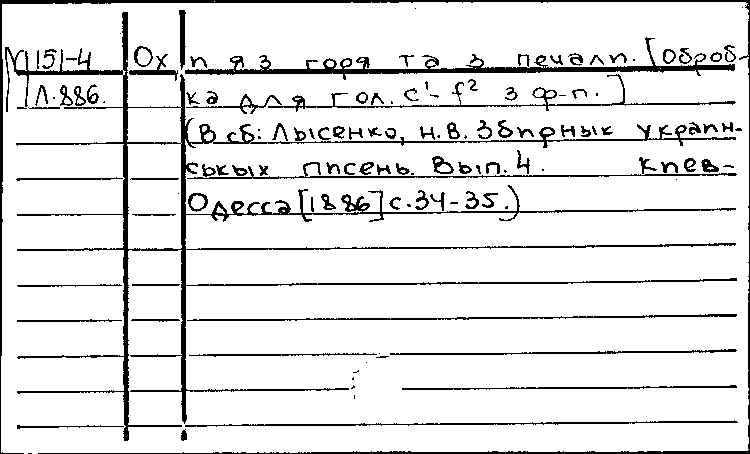 М 151-4 Ох п я з горя та з печали. [Оброб-
Л.886. ка для гол. c¹- f² з ф-п.]
(В сб: Лысенко, Н.В. Збирнык украин-
ськых писень. Вып. 4. Киев-
Одесса [1886] с.34-35.)